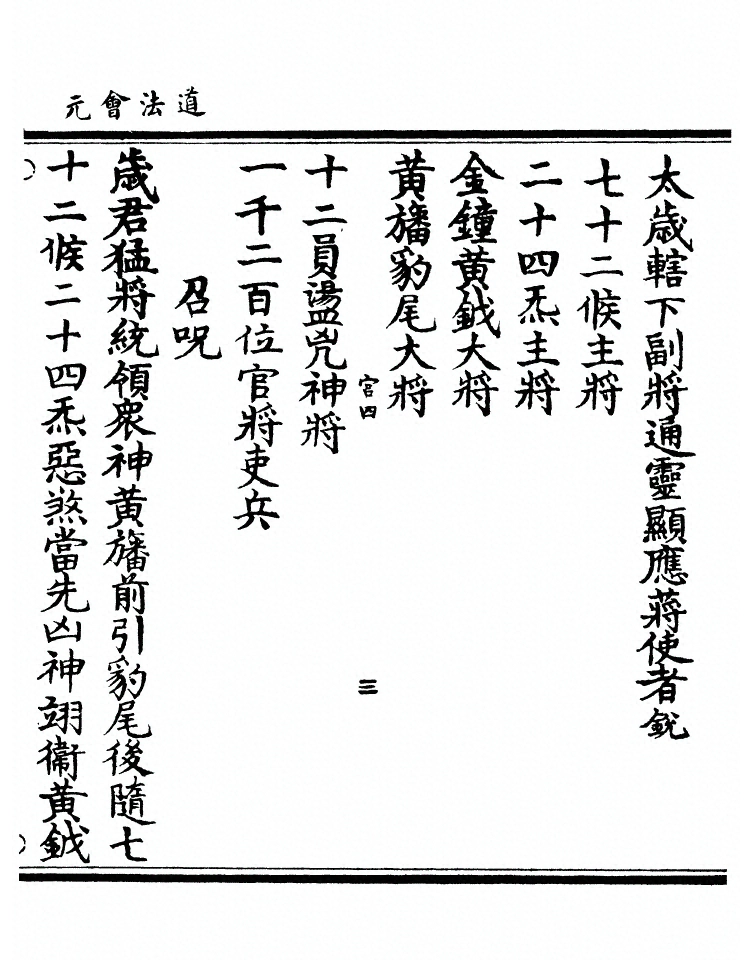 道法會元
太歲轄下副將通靈顯應蔣使者銳
七十二候主將
二十四炁主將
金鐘黃鉞大將
黃旛豹尾大將
宮四
三
十二員盪兇神將
一千二百位官將吏兵
召呪
歲君猛將統領衆神黃旛前引豹尾後隨七
十二候二十四炁惡煞當先凶神翊衞黃鉞